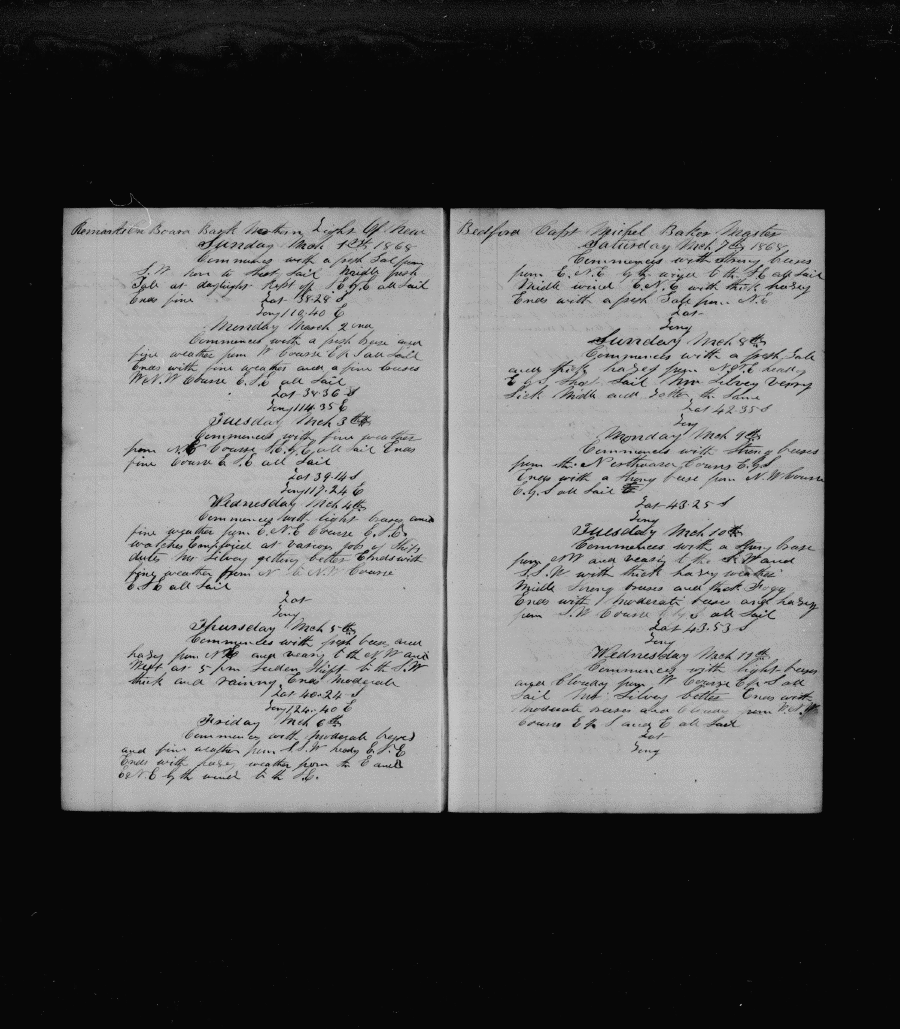 Remarks On Board Bark Northern Light Of New
Sunday Mch 1st 1868
Commences with a fresh Gale from
S. W under Short Sail Middle fresh
Gale at daylight Kept off S.E.by E all Sail
Ends fine Lat 38-28 S
Long 110-40 E
Monday March 2nd
Commences with a fresh breese and
fine weather from W Course E by S all Sail
Ends with fine weather and a fine breeses
W.N.W Course E.S.E all Sail
Lat 38-36 S
Long 114-35 E
Tuesday Mch 3th
Commences with fine weather
from N. Course S.E.by E all Sail Ends
fine Course E S.E all Sail
Lat 39-14 S
Long 117-24 E
Wednesday Mch 4th
Commences with light breeses and
fine weather from E.N.E Course
watches Employed at various jobs of Ships
duties Mr Silvey getting better Ends with
fine weather from N to N.W Course
E.S.E all Sail
Lat
Long
Thursday Mch 5th
Commences with fresh breese and
hazey from and veary to the N W and
West at 5 pm Suden Shift to the S.W
thick and rainny Ends Moderate
Lat 40-24 S
Long 124-40 E
Friday Mch 6th
Commences with moderate breeses
and fine weather from S.S.W heady E.S.E
Ends with hazey weather from the E and
by the wind to the S.E.
Bedford Capt Michel Baker Master
Saturday Mch 7th 1868
Commences with Strong breeses
from E.N.E by the wind to the S.E all Sail
Middle wind E.N.E with thick hazey
Ends with a fresh Gale from N.E
Lat
Long
Sunday Mch 8th
Commences with a fresh Gale
and thick hazey from heady
E by S Short Sail Mr Silvey verry
Sick Middle and Latter the Same
Lat 42-35 S
Long
Monday Mch 9th
Commences with strong breeses
from the Northward Course E.by S
Ends with a strong breese from N.W Course
E.by S all Sail
Lat 43-25 S
Long
Tuesday Mch 10th
Commences with a Strong breese
from NW and veary to the S.W and
S.S.W with thick hazey weather
Middle Strong breeses and thick Fogg
Ends with moderate breeses and hazey
from S.W Course E by S all Sail
Lat 43-53 S
Long
Wednesday Mch 11th
Commences with light breeses
and Cloudy from W Course E by S all
Sail Mr Silvey better Ends with
moderate breeses and Cloudy from W.S.W
Course E by S and E all Sail
Lat
Long